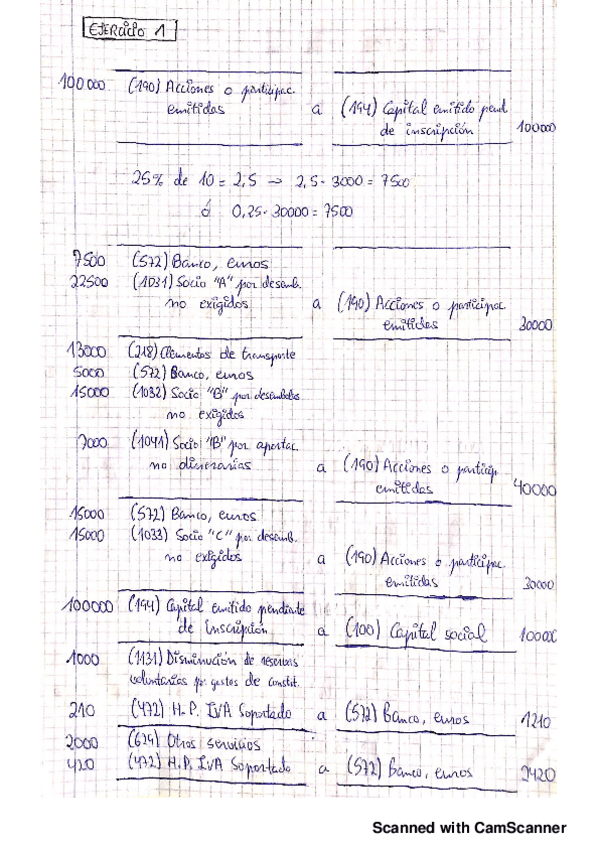 EJERCICIO 1
100000 (190) Acciones o participac.
emitidas a (194) Capital emitido pend
de inscripción 100000
25% de 10 = 2,5 → 2,5 · 3000 = 7500
ó 0,25 · 30000 = 7500
7500 (572) Banco, euros
22500 (1031) Socio "A" por desemb.
no exigidos a (190) Acciones o participac.
emitidas 30000
13000 (218) Elementos de transporte
5000 (572) Banco, euros
15000 (1032) Socio "B" por desembolsos
no exigidos
7000 (1041) Socio "B" por aportac.
no dinerarias a (190) Acciones o particip.
emitidas 40000
15000 (572) Banco, euros
15000 (1033) Socio "C" por desemb.
no exigidos a (190) Acciones o participac.
emitidas 30000
100000 (194) Capital emitido pendiente
de Inscripción a (100) Capital social 100000
1000 (1131) Disminución de reservas
voluntarias por gastos de constit.
210 (472) H.P. IVA Soportado a (572) Banco, euros 1210
2000 (629) Otros servicios
420 (472) H.P. IVA Soportado a (572) Banco, euros 2420
Scanned with CamScanner